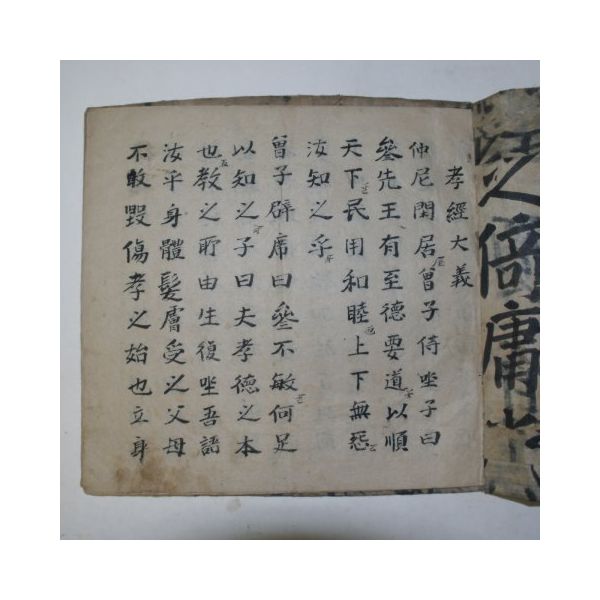 孝經大義
仲尼閑居曾子侍坐子曰
參先王有至德要道以順
天下民用和睦上下無怨
汝知之乎
曾子辟席曰參不敏何足
以知之子曰夫孝德之本
也教之所由生復坐吾語
汝乎身體髮膚受之父母
不敢毀傷孝之始也立身